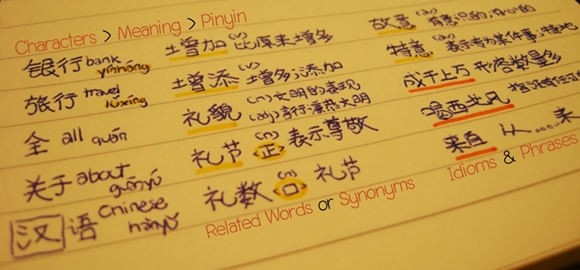 Characters > Meaning > Pinyin
银行 bank yínháng
旅行 travel lǚxíng
全 all quán
关于 about guānyú
汉语 Chinese hànyǔ
增加 (v) 比原来增多
增添 (v) 增多;添加
礼貌 (n) 文明的表现
(adj) 言行谦恭文明
礼节 (n) 正 表示尊敬
礼数 (n) 口 礼节
Related Words or Synonyms
故意
特意 表示专为某件事
成千上万 形容数量多
喝西北风
来自 从...来
Idioms & Phrases